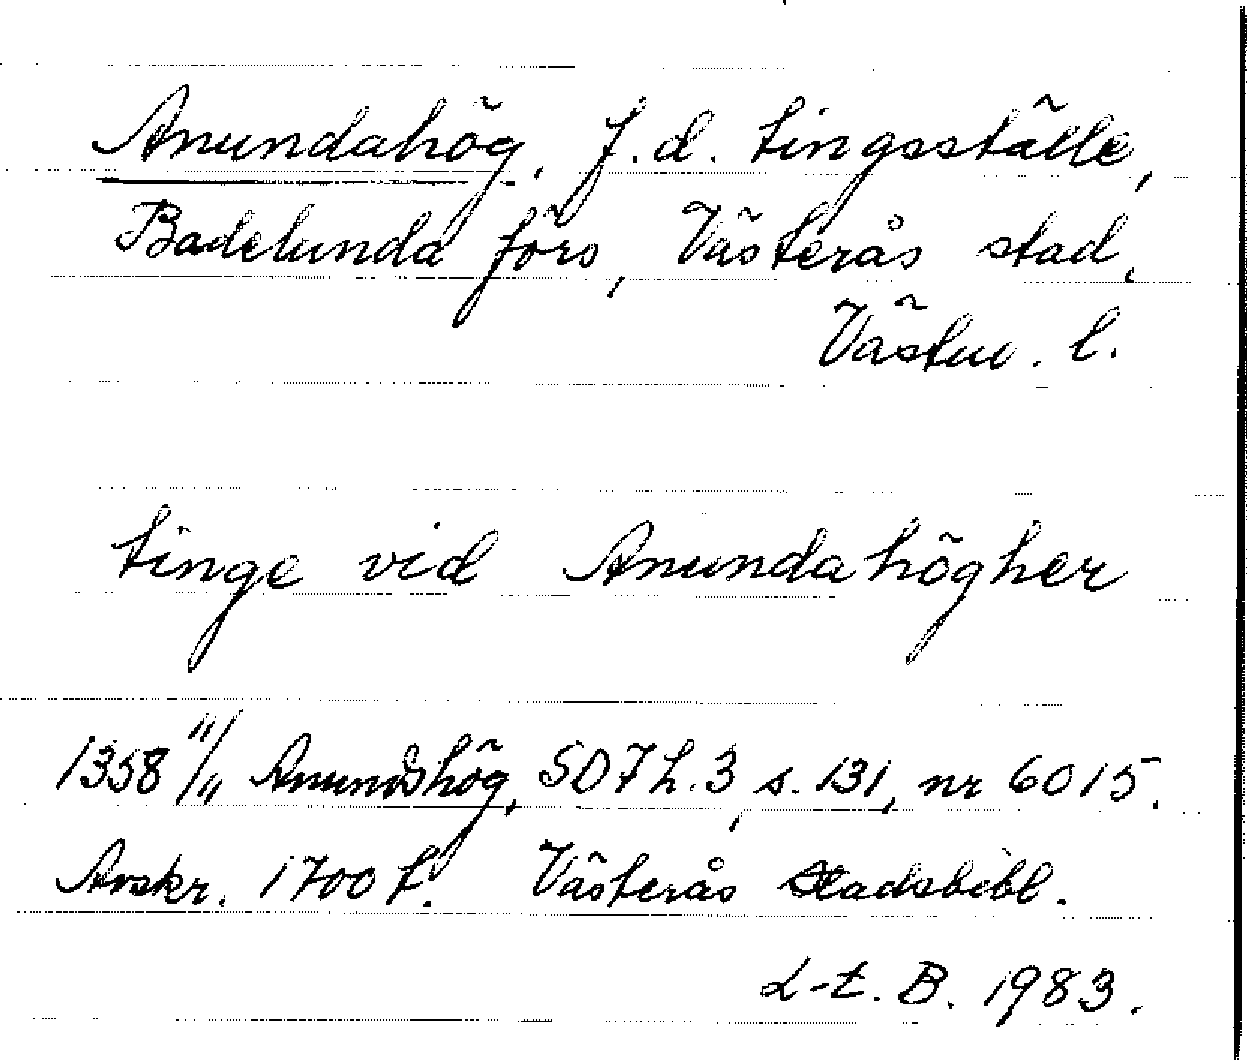 Anundahög. f.d. tingsställe,
Badelunda förs, Västerås stad,
Västm. l.
tinge vid Anundahögher
1358 11/11 Anundshög, SD 7 h. 3, s. 131, nr 6015.
Avskr. 1700 t. Västerås Stadsbibl.
L-E. B. 1983.